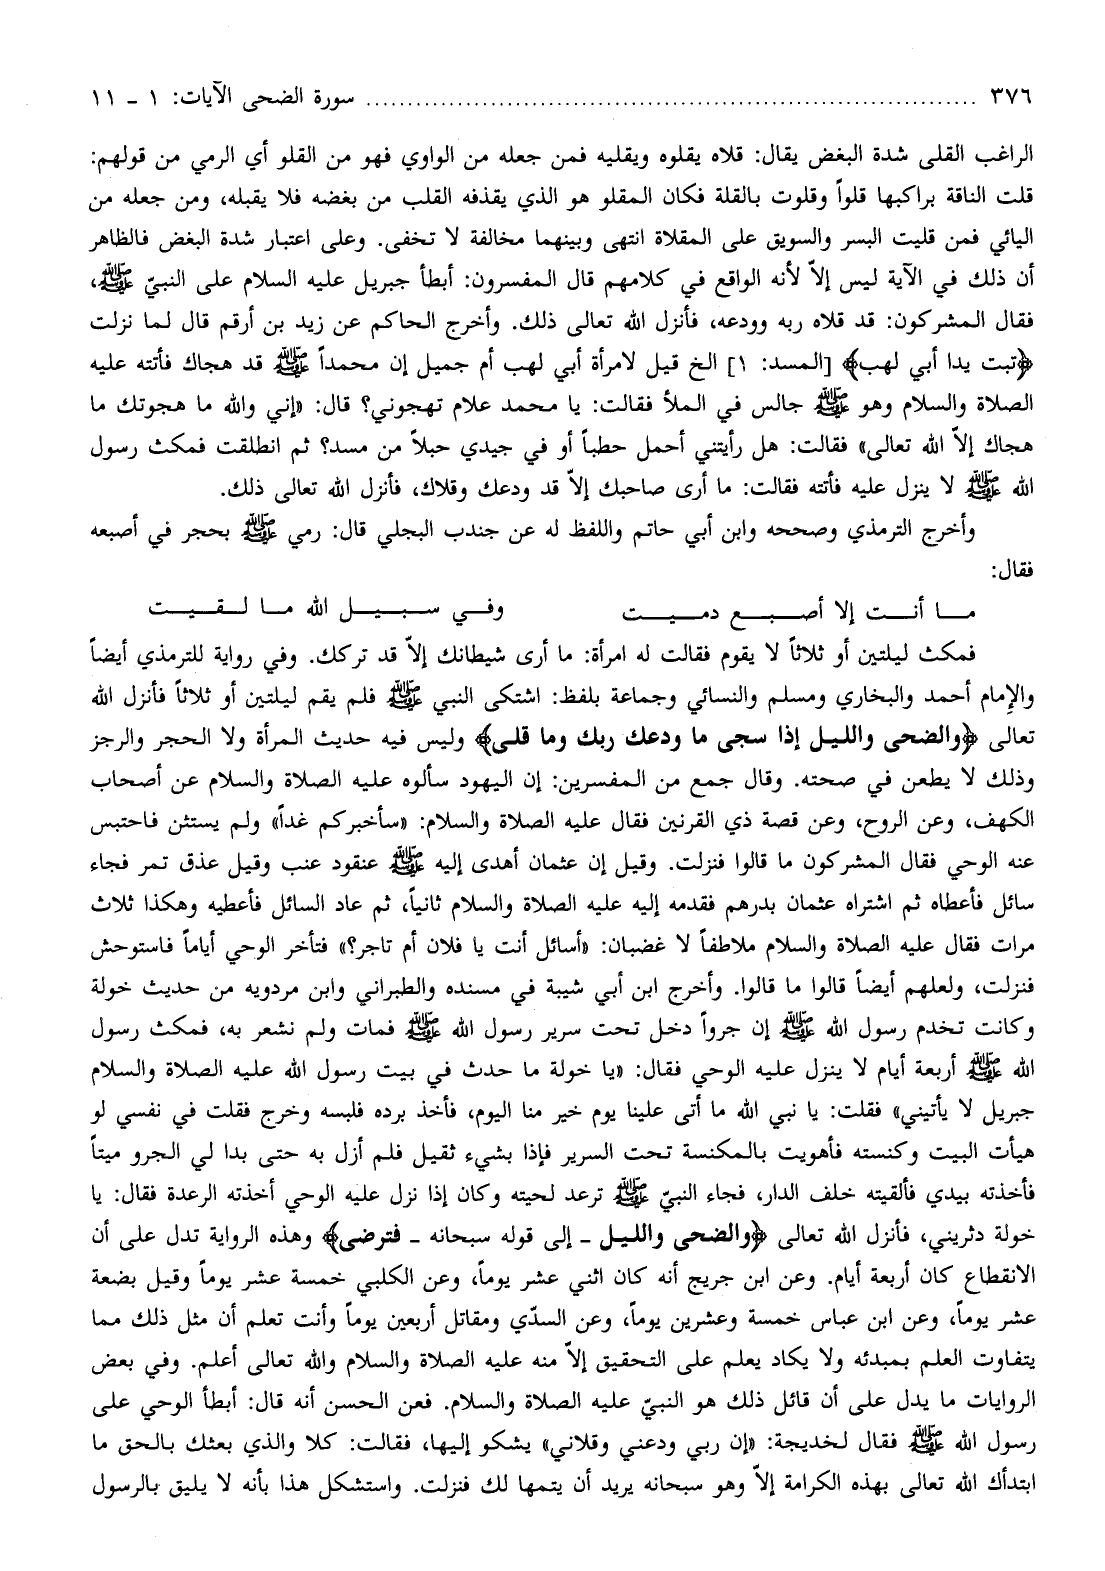 ٣٧٦ ........ سورة الضحى الآيات: ١ - ١١
الراغب القلى شدة البغض يقال: قلاه يقلوه ويقليه فمن جعله من الواوي فهو من القلو أي الرمي من قولهم:
قلت الناقة براكبها قلواً وقلوت بالقلة فكان المقلو هو الذي يقذفه القلب من بغضه فلا يقبله، ومن جعله من
اليائي فمن قليت البسر والسويق على المقلاة انتهى وبينهما مخالفة لا تخفى. وعلى اعتبار شدة البغض فالظاهر
أن ذلك في الآية ليس إلاّ لأنه الواقع في كلامهم قال المفسرون: أبطأ جبريل عليه السلام على النبيّ ﷺ،
فقال المشركون: قد قلاه ربه وودعه، فأنزل الله تعالى ذلك. وأخرج الحاكم عن زيد بن أرقم قال لما نزلت
﴿تبت يدا أبي لهب﴾ [المسد: ١] الخ قيل لامرأة أبي لهب أم جميل إن محمداً ﷺ قد هجاك فأتته عليه
الصلاة والسلام وهو ﷺ جالس في الملأ فقالت: يا محمد علام تهجوني؟ قال: «إني والله ما هجوتك ما
هجاك إلاّ الله تعالى» فقالت: هل رأيتني أحمل حطباً أو في جيدي حبلاً من مسد؟ ثم انطلقت فمكث رسول
الله ﷺ لا ينزل عليه فأتته فقالت: ما أرى صاحبك إلاّ قد ودعك وقلاك، فأنزل الله تعالى ذلك.
وأخرج الترمذي وصححه وابن أبي حاتم واللفظ له عن جندب البجلي قال: رمي ﷺ بحجر في أصبعه
فقال:
مـا أنـت إلا أصبـع دميـت وفـي سبيـل الله مـا لقيـت
فمكث ليلتين أو ثلاثاً لا يقوم فقالت له امرأة: ما أرى شيطانك إلاّ قد تركك. وفي رواية للترمذي أيضاً
والإمام أحمد والبخاري ومسلم والنسائي وجماعة بلفظ: اشتكى النبي ﷺ فلم يقم ليلتين أو ثلاثاً فأنزل الله
تعالى ﴿والضحى والليل إذا سجى ما ودعك ربك وما قلى﴾ وليس فيه حديث المرأة ولا الحجر والرجز
وذلك لا يطعن في صحته. وقال جمع من المفسرين: إن اليهود سألوه عليه الصلاة والسلام عن أصحاب
الكهف، وعن الروح، وعن قصة ذي القرنين فقال عليه الصلاة والسلام: «سأخبركم غداً» ولم يستثن فاحتبس
عنه الوحي فقال المشركون ما قالوا فنزلت. وقيل إن عثمان أهدى إليه ﷺ عنقود عنب وقيل عذق تمر فجاء
سائل فأعطاه ثم اشتراه عثمان بدرهم فقدمه إليه عليه الصلاة والسلام ثانياً، ثم عاد السائل فأعطيه وهكذا ثلاث
مرات فقال عليه الصلاة والسلام ملاطفاً لا غضبان: «أسائل أنت يا فلان أم تاجر؟» فتأخر الوحي أياماً فاستوحش
فنزلت، ولعلهم أيضاً قالوا ما قالوا. وأخرج ابن أبي شيبة في مسنده والطبراني وابن مردويه من حديث خولة
وكانت تخدم رسول الله ﷺ إن جرواً دخل تحت سرير رسول الله ﷺ فمات ولم نشعر به، فمكث رسول
الله ﷺ أربعة أيام لا ينزل عليه الوحي فقال: «يا خولة ما حدث في بيت رسول الله عليه الصلاة والسلام
جبريل لا يأتيني» فقلت: يا نبي الله ما أتى علينا يوم خير منا اليوم، فأخذ برده فلبسه وخرج فقلت في نفسي لو
هيأت البيت وكنسته فأهويت بالمكنسة تحت السرير فإذا بشيء ثقيل فلم أزل به حتى بدا لي الجرو ميتاً
فأخذته بيدي فألقيته خلف الدار، فجاء النبيّ ﷺ ترعد لحيته وكان إذا نزل عليه الوحي أخذته الرعدة فقال: يا
خولة دثريني، فأنزل الله تعالى ﴿والضحى والليل ـ إلى قوله سبحانه ـ فترضى﴾ وهذه الرواية تدل على أن
الانقطاع كان أربعة أيام. وعن ابن جريج أنه كان اثني عشر يوماً، وعن الكلبي خمسة عشر يوماً وقيل بضعة
عشر يوماً، وعن ابن عباس خمسة وعشرين يوماً، وعن السدّي ومقاتل أربعين يوماً وأنت تعلم أن مثل ذلك مما
يتفاوت العلم بمبدئه ولا يكاد يعلم على التحقيق إلاّ منه عليه الصلاة والسلام والله تعالى أعلم. وفي بعض
الروايات ما يدل على أن قائل ذلك هو النبيّ عليه الصلاة والسلام. فعن الحسن أنه قال: أبطأ الوحي على
رسول الله ﷺ فقال لخديجة: «إن ربي ودعني وقلاني» يشكو إليها، فقالت: كلا والذي بعثك بالحق ما
ابتدأك الله تعالى بهذه الكرامة إلاّ وهو سبحانه يريد أن يتمها لك فنزلت. واستشكل هذا بأنه لا يليق بالرسول